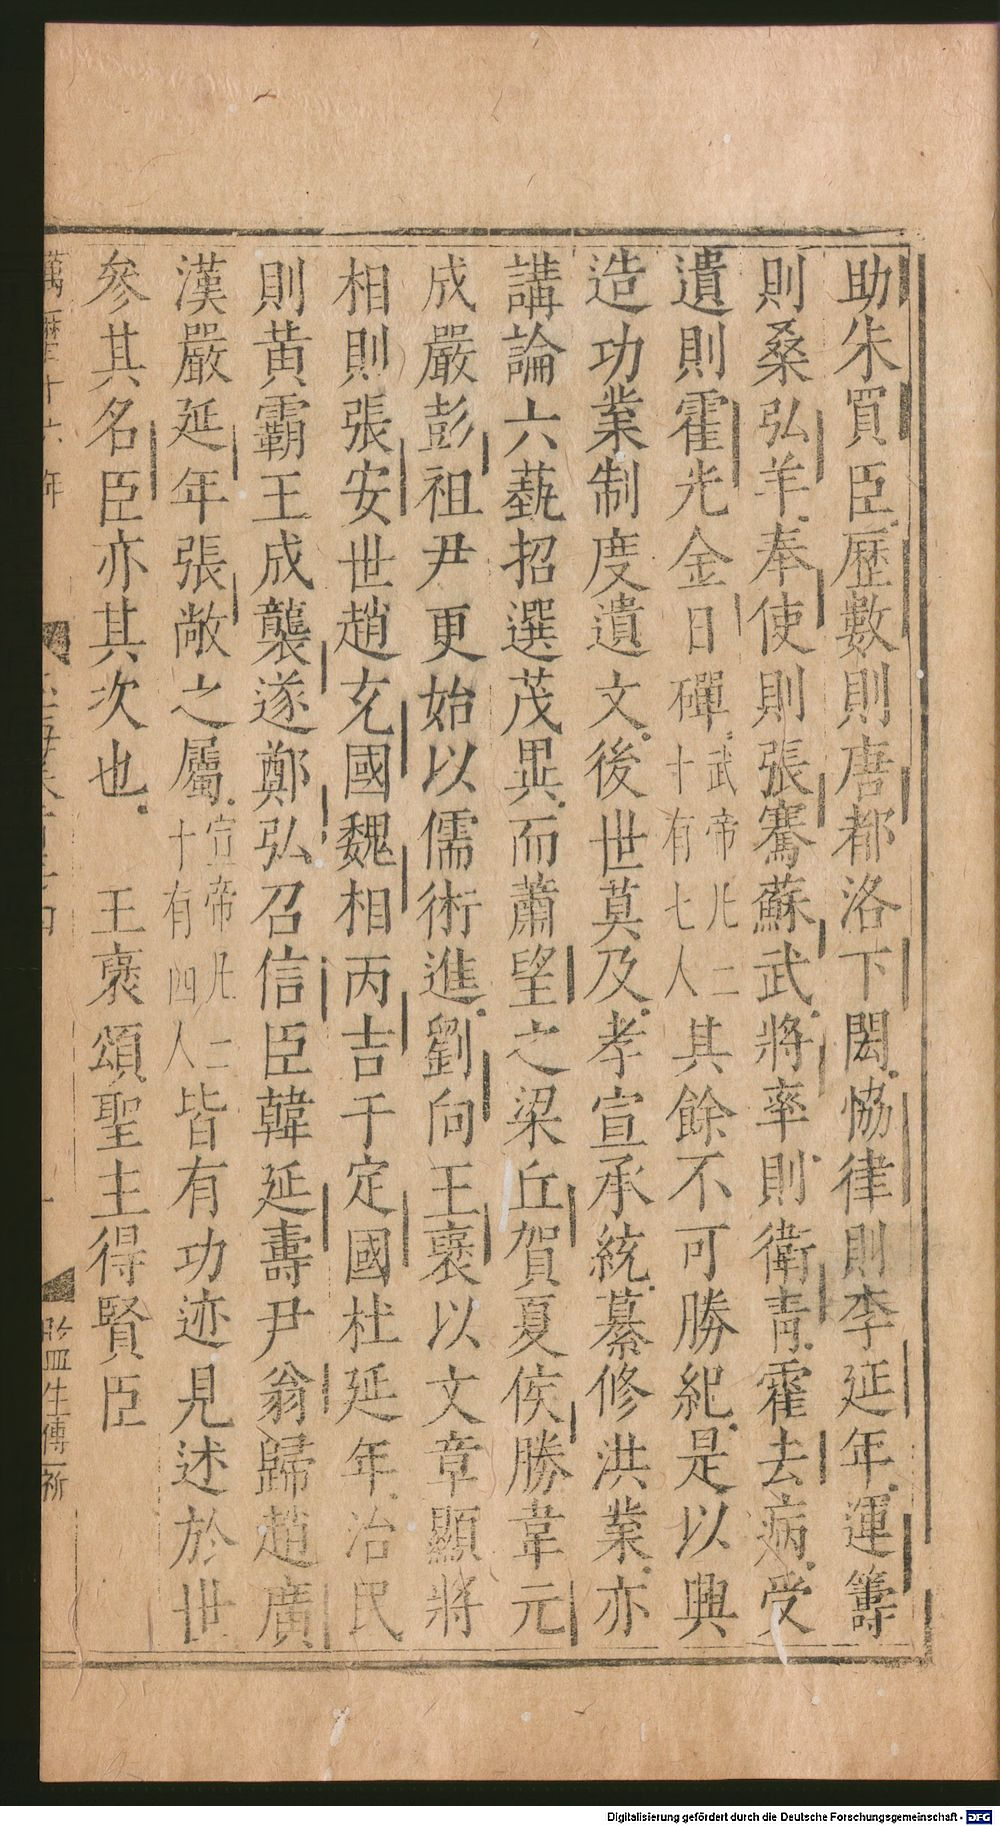 助朱買臣歷數則唐都洛下閎恊律則李延年運籌
則桑弘羊奉使則張騫蘇武將率則衛靑霍去病受
遺則霍光金日磾武帝凡二十有七人其餘不可勝紀是以興
造功業制度遺文後世莫及孝宣承統纂修洪業亦
講論六藝招選茂異而蕭望之梁丘賀夏侯勝韋元
成嚴彭祖尹更始以儒術進劉向王襃以文章顯將
相則張安世趙充國魏相丙吉于定國杜延年治民
則黄霸王成龔遂鄭弘召信臣韓延壽尹翁歸趙廣
漢嚴延年張敞之屬宣帝凡二十有四人皆有功迹見述於世
參其名臣亦其次也 王襃頌聖主得賢臣
萬曆十六年
監生傅一新
Digitalisierung gefördert durch die Deutsche Forschungsgemeinschaft - DFG